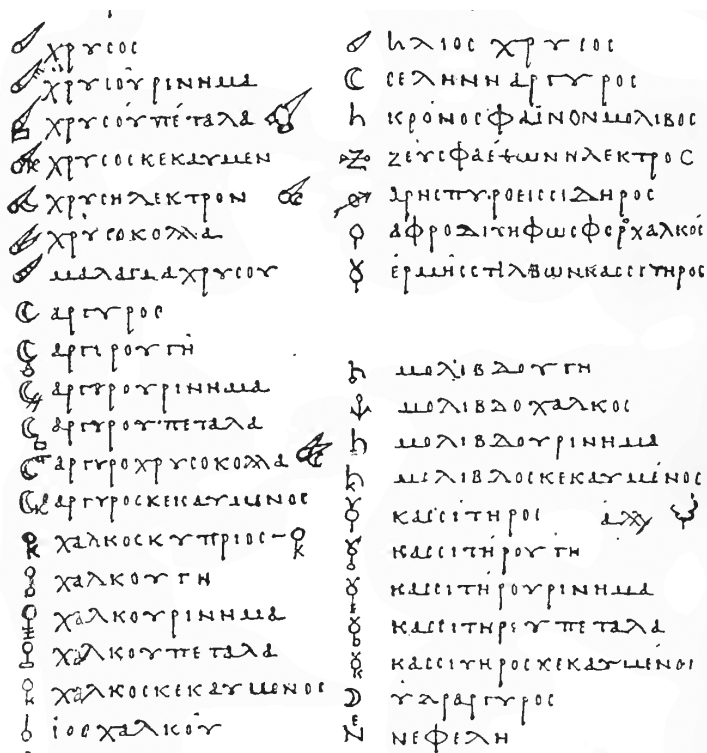 χρυσος
χρυσου ρινημα
χρυσού πέταλα
χρυσος κεκαυμεν
χρυσηλεκτρον
χρύσοκολλα
μαλαγμα χρυσου
αργυρος
αργιρου γή
αργυρου ρινημα
αργυρου πεταλα
αργυροχρυσοκολλα
αργυρος κεκαυμενος
χαλκος κυπριος
χαλκου γη
χαλκου ρινημα
χαλκου πεταλα
χαλκος κεκαυμενος
ιος χαλκού
ηλιος χρυσος
σεληνη αργυρος
κρόνος φαίνον μολιβος
ζεύς φαέθων ηλεκτρος
αρης πυροεις σιδηρος
αφροδιτη φωσφορ χαλκός
ερμής στίλβων κασσιτηρος
μολίβδου γη
μολιβδοχαλκος
μολιβδου ρινημα
μολιβδος κεκαυμένος
κασσίτηρος
κασσιτήρου γη
κασσιτήρου ρινημα
κασσιτηρου πεταλα
κασσιτηρος κεκαυμένος
υδραργυρος
νεφελη